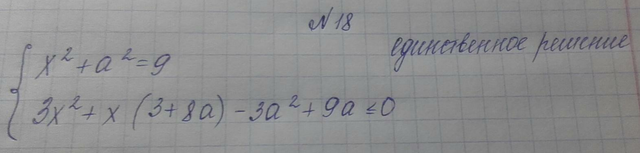 №18
единственное решение
x² + a² = 9
3x² + x (3+8a) - 3a² + 9a ≤ 0